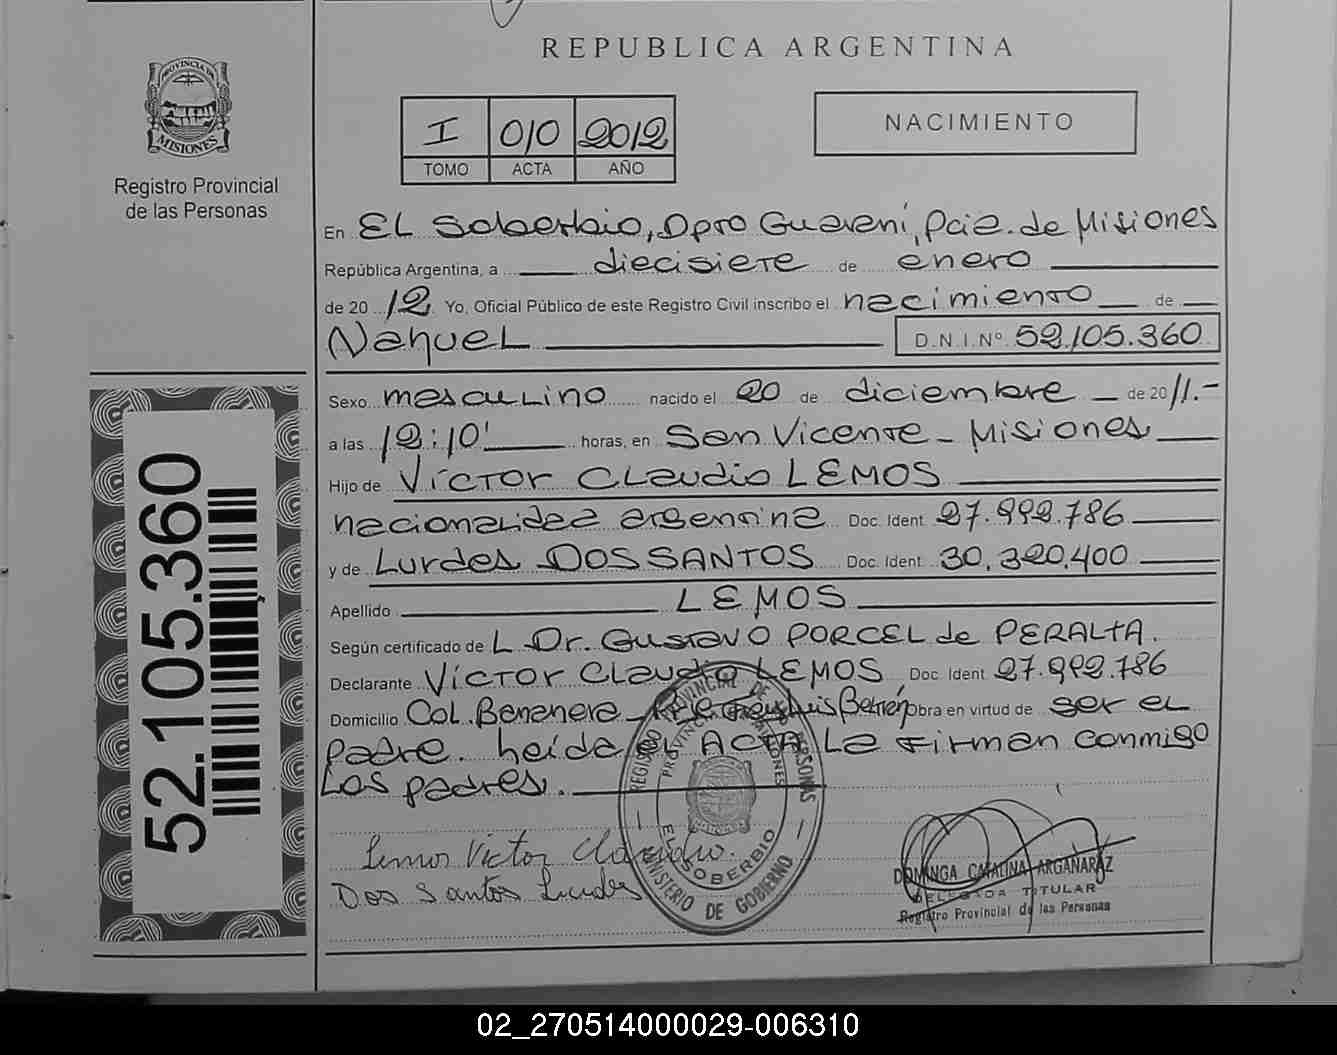 REPUBLICA ARGENTINA
PROVINCIA DE MISIONES
Registro Provincial
de las Personas
I 010 2012
TOMO ACTA AÑO
NACIMIENTO
En EL Soberbio, Dpto Guaraní, Pcia. de Misiones
República Argentina, a diecisiete de enero
de 2012 Yo, Oficial Público de este Registro Civil inscribo el nacimiento de
Nahuel D.N.I.Nº 52.105.360
Sexo masculino nacido el 20 de diciembre de 2011.-
a las 12:10' horas, en San Vicente - Misiones
Hijo de Víctor Claudio LEMOS
nacionalidad argentina Doc. Ident. 27.992.786
y de Lurdes DOS SANTOS Doc. Ident. 30.320.400
Apellido LEMOS
Según certificado de L Dr. Gustavo PORCEL de PERALTA.
Declarante Víctor Claudio LEMOS Doc. Ident. 27.992.786
Domicilio Col. Bananera - Luis Beltrán Obra en virtud de ser el
padre. Leída el ACTA La firman conmigo
Los padres.
Lemos Victor Claudio.
Dos Santos Lurdes
REGISTRO PROVINCIAL DE LAS PERSONAS
PROVINCIA DE MISIONES
EL SOBERBIO
MINISTERIO DE GOBIERNO
DOMINGA CATALINA ARGAÑARAZ
DELEGADA TITULAR
Registro Provincial de las Personas
52.105.360
02_270514000029-006310